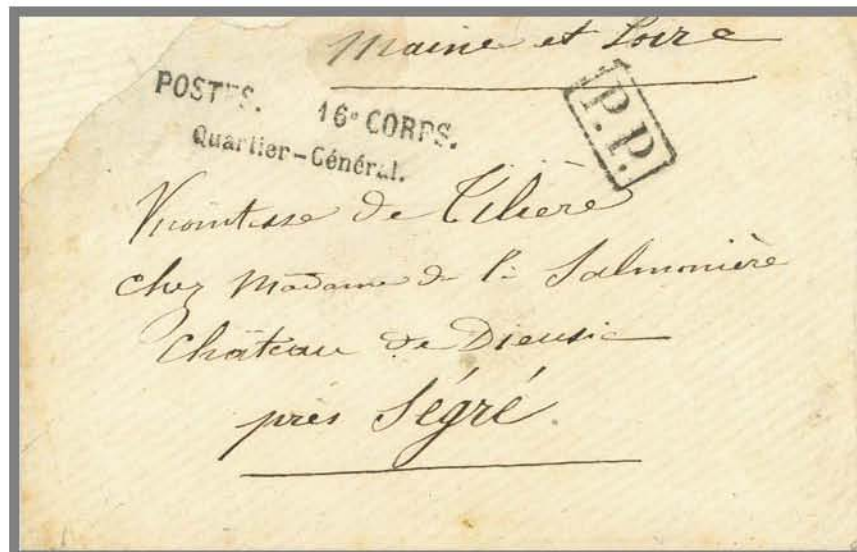 Maine et Loire
POSTES. 16e CORPS.
Quartier-Général.
P.P.
Vicomtesse de Tilière
chez Madame de la Salmonière
Château de Dieusie
près Ségré.